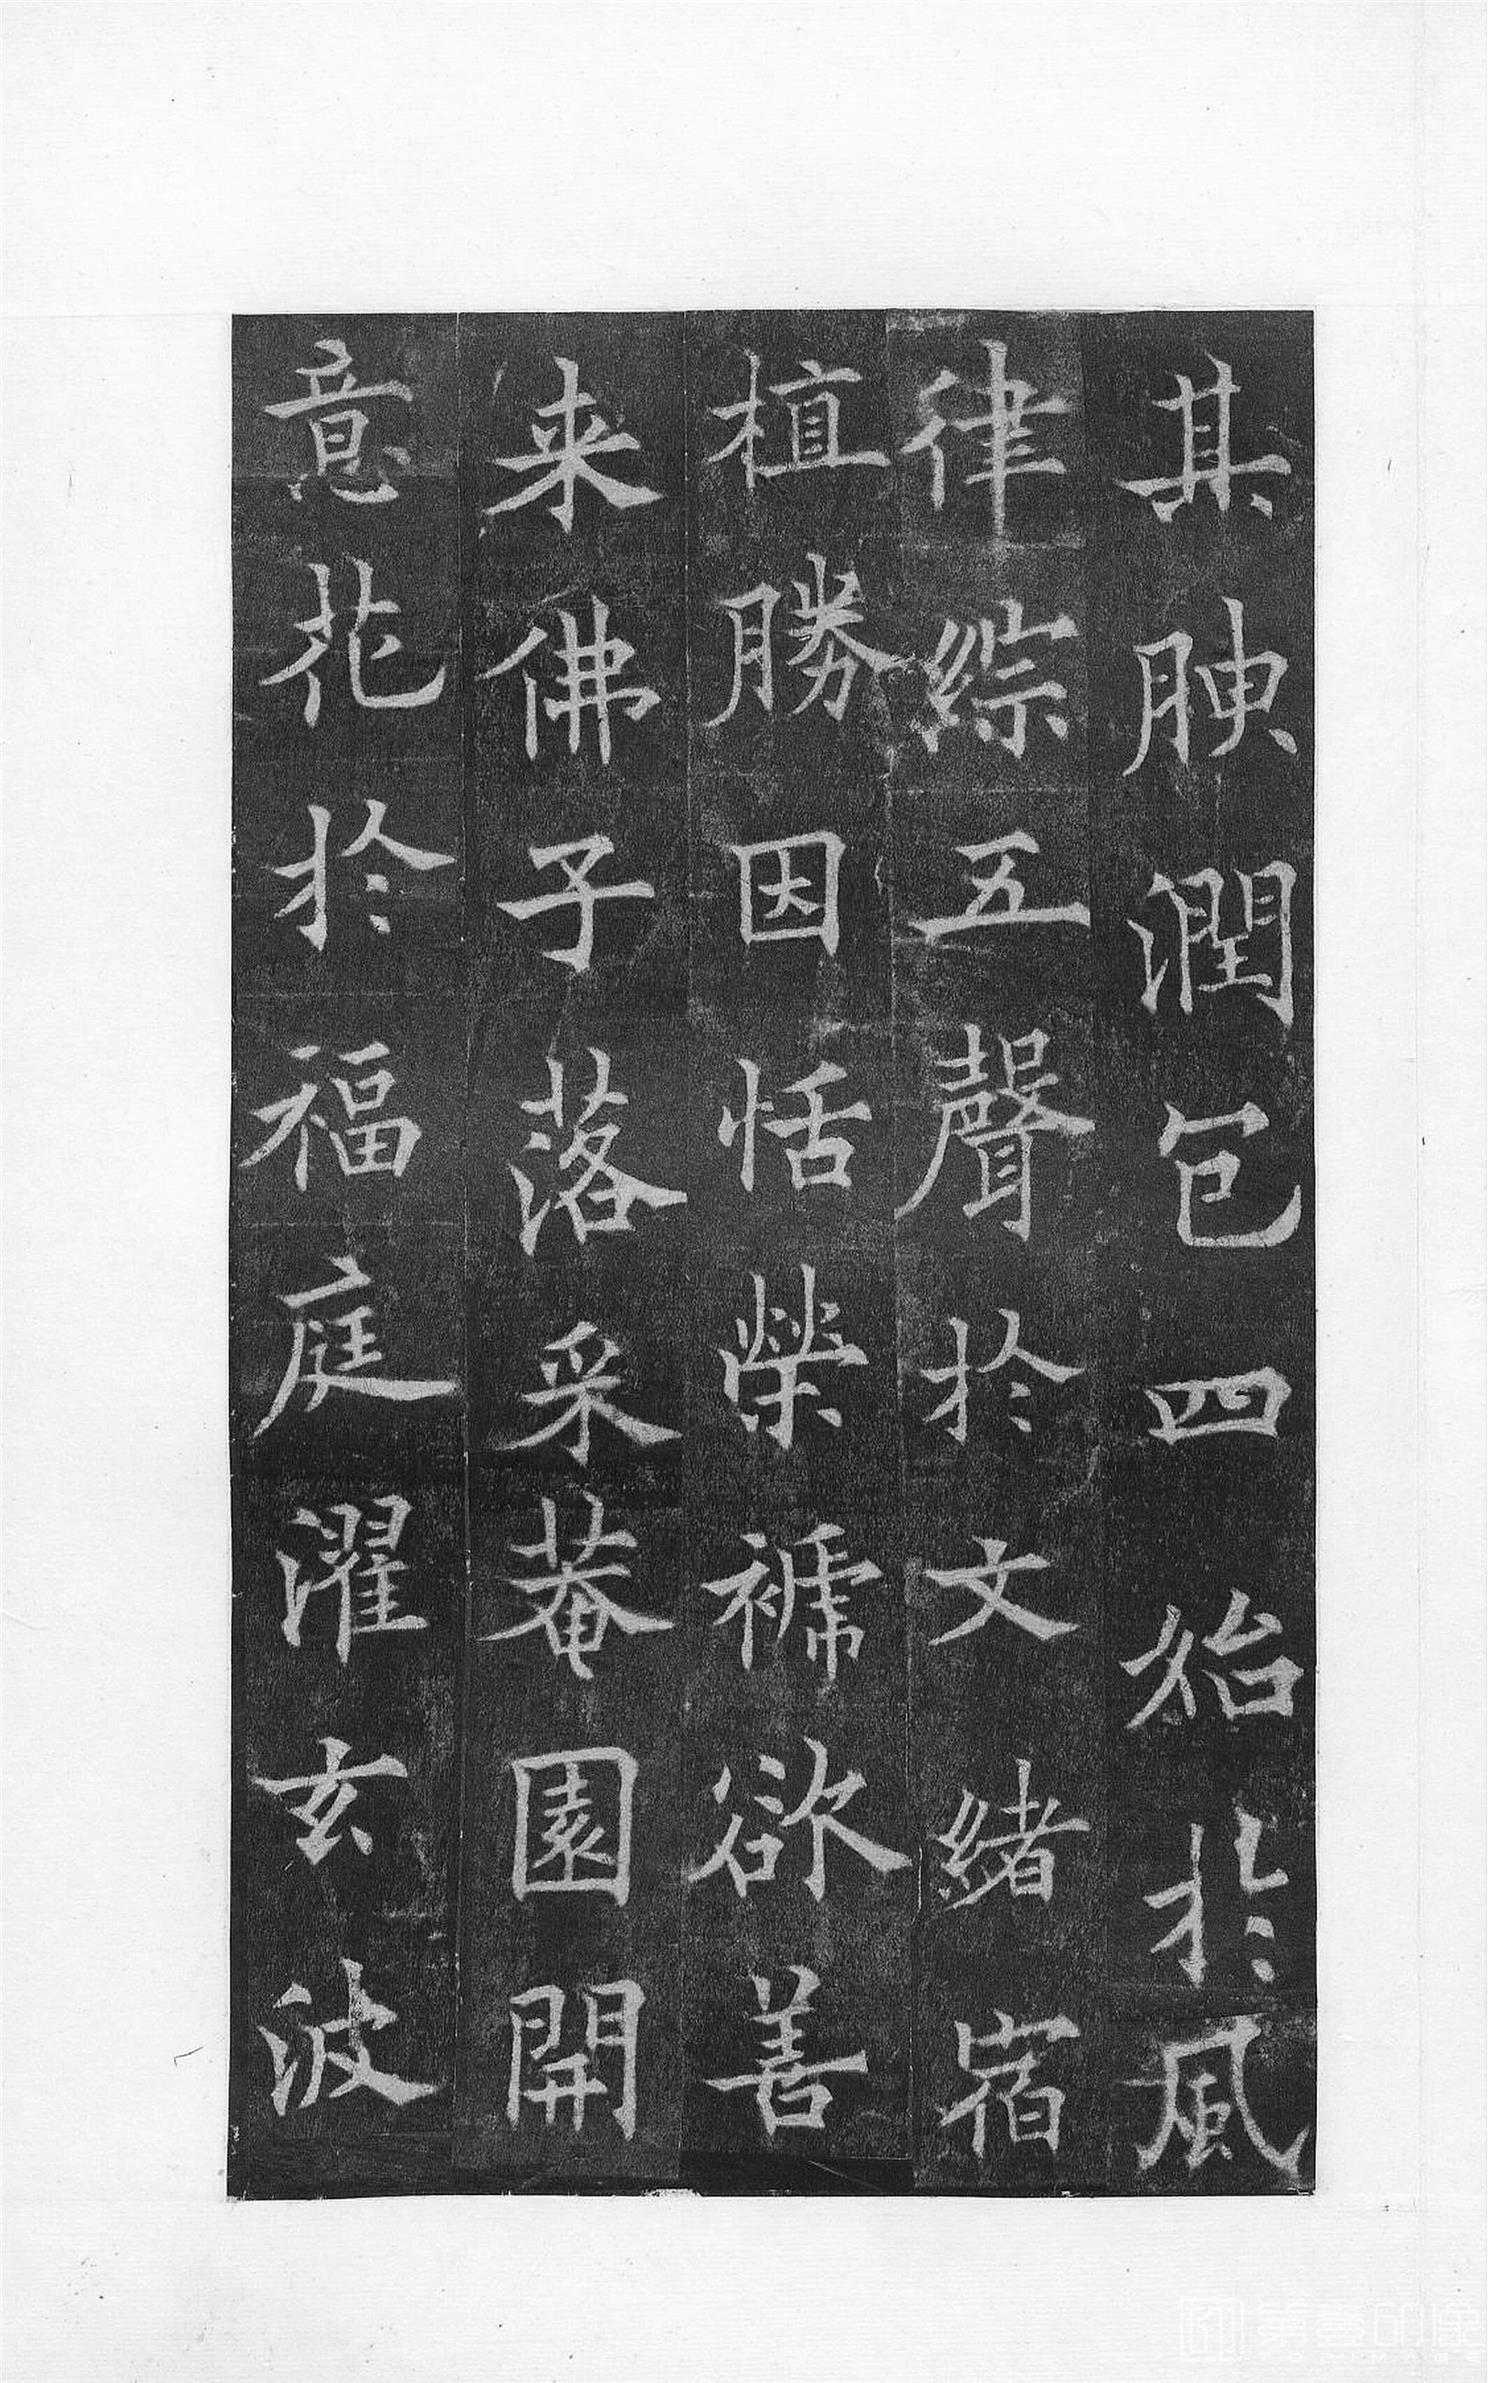 其腴潤包四始於風
律綜五聲於文緒宿
植勝因恬榮褫欲善
来佛子落采菴園開
意花於福庭濯玄波
第壹印像
TOPIMAGE